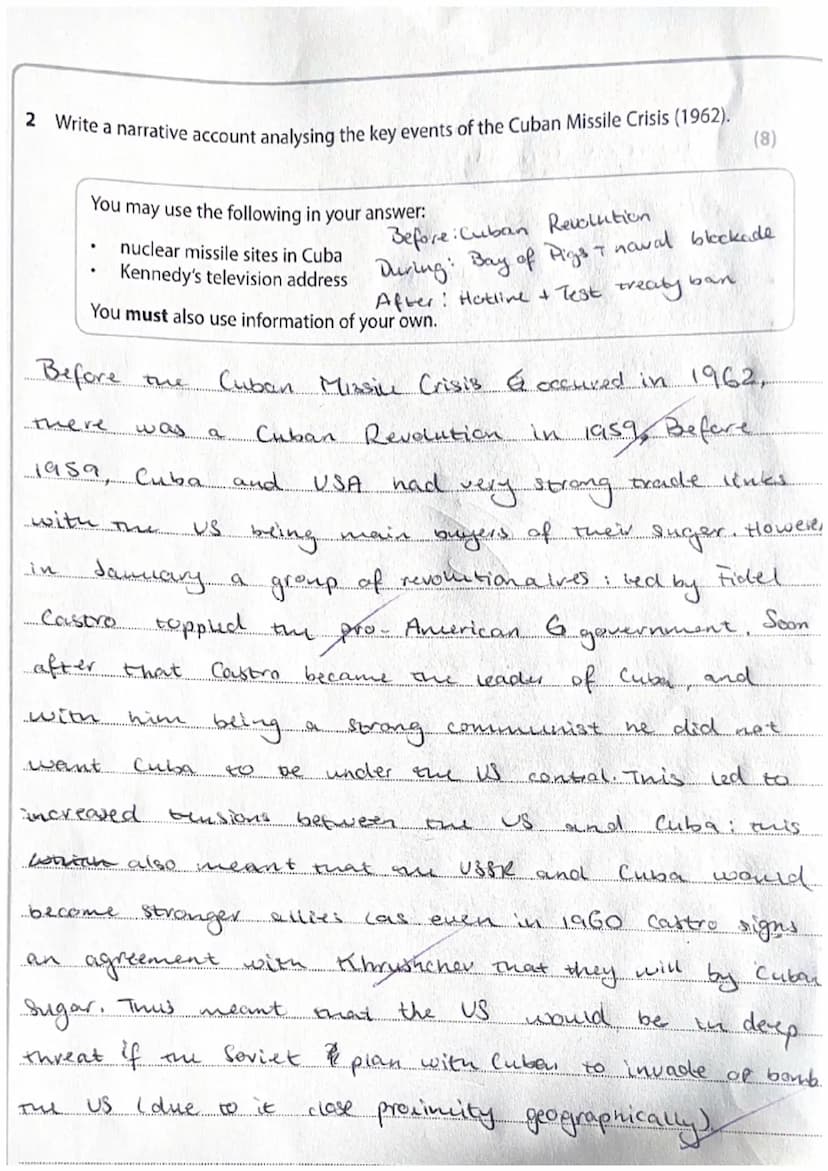 2 Write a narrative account analysing the key events of the Cuban Missile Crisis (1962).
(8)
You may use the following in your answer:
• nuclear missile sites in Cuba
• Kennedy's television address
You must also use information of your own.
Before: Cuban Revolution
During: Bay of Pigs + naval blockade
After: Hotline + Test treaty ban
Before the Cuban Missile Crisis occured in 1962,
there was a Cuban Revolution in 1959, Before
1959, Cuba and USA had very strong trade links
with the US being main buyers of their suger. However
in January a group of revolutionaires: led by Fidel
Castro toppled the pro- American government. Soon
after that Castro became the leader of Cuba, and
with him being a strong communist he did not
want Cuba to be under the US control. This led to
increased tensions between the US and Cuba: this
also meant that the USSR and Cuba would
become stronger allies (as even in 1960 Castro signs
an agreement with Khrushchev that they will by Cuban
sugar. This meant that the US would be in deep
threat if the Soviet plan with Cuba to invade or bomb
the US (due to it close proximity geographically).